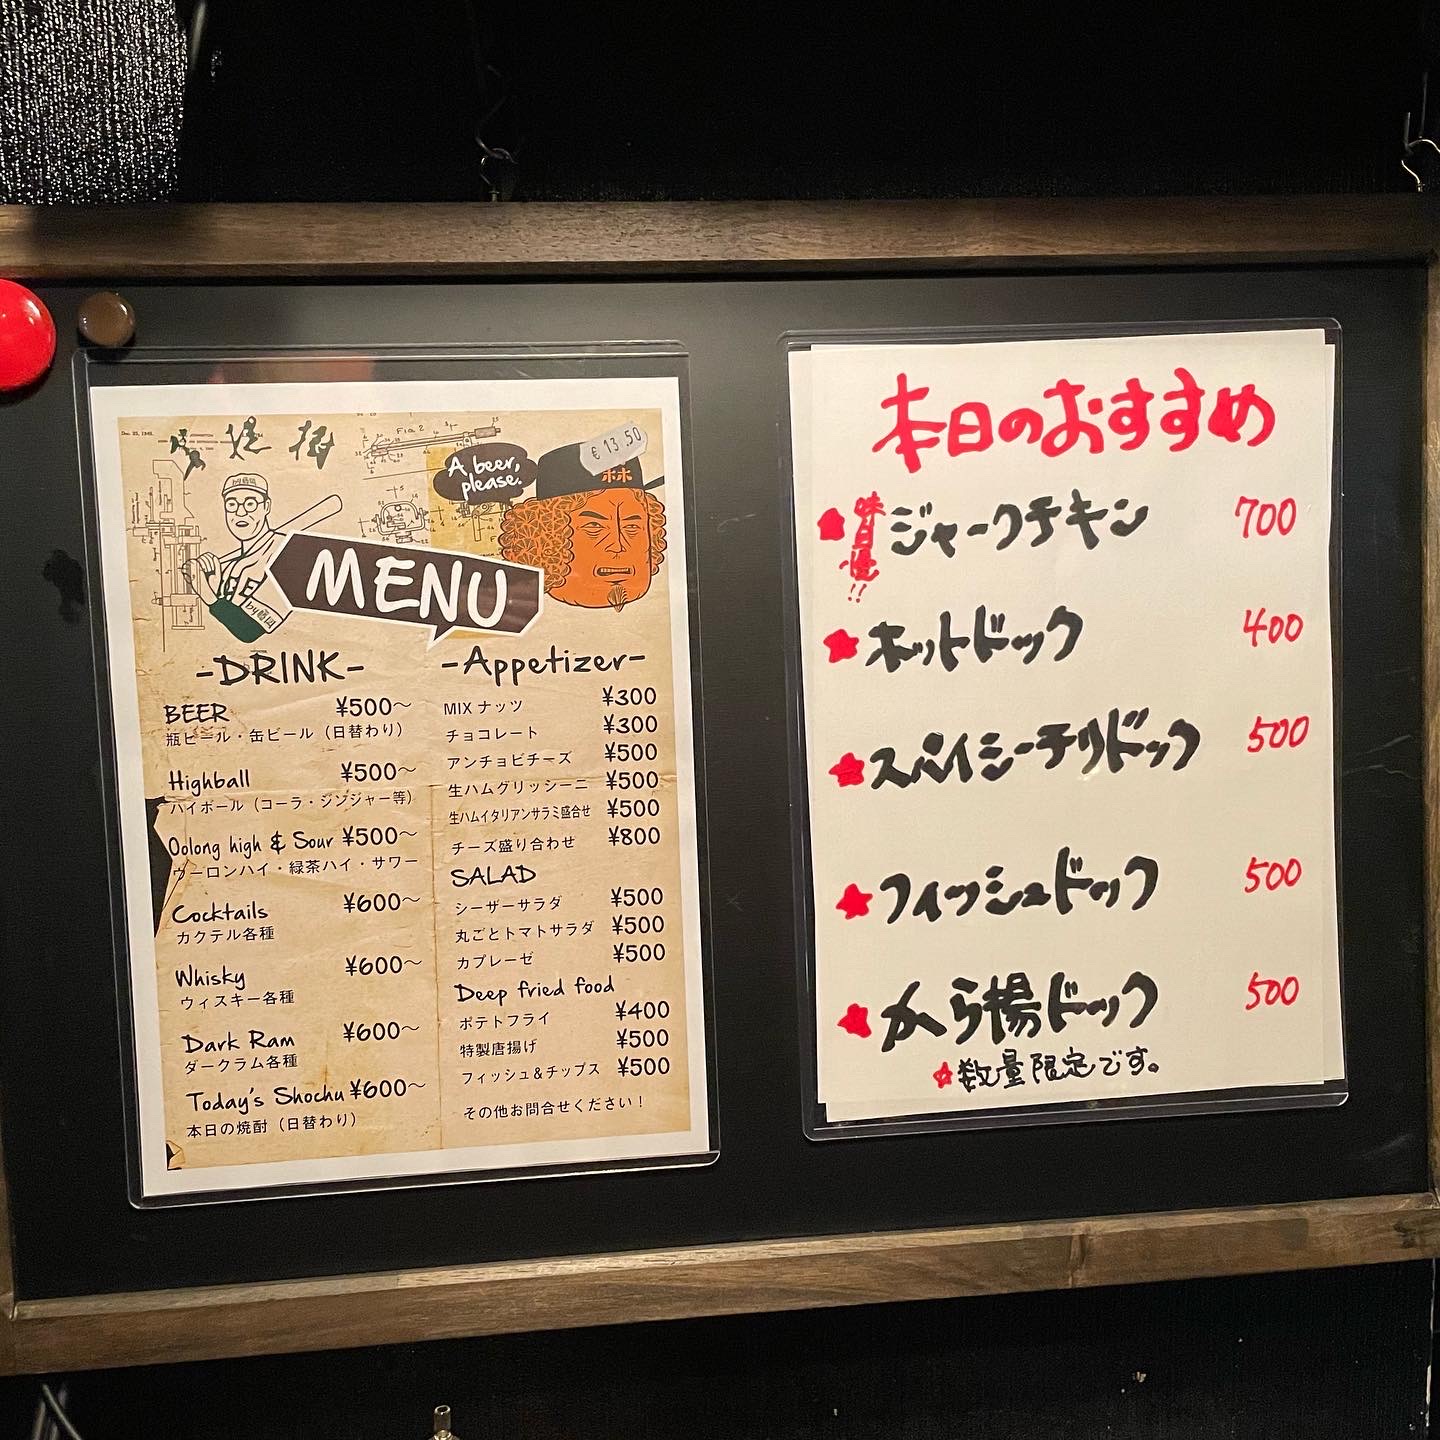 Dec. 25, 1945.
Fig 2
A beer,
please.
€ 13.50
ホホ
by藤岡
by藤岡
MENU
-DRINK-
BEER ¥500〜
瓶ビール・缶ビール（日替わり）
Highball ¥500〜
ハイボール（コーラ・ジンジャー等）
Oolong high & Sour ¥500〜
ウーロンハイ・緑茶ハイ・サワー
Cocktails ¥600〜
カクテル各種
Whisky ¥600〜
ウィスキー各種
Dark Ram ¥600〜
ダークラム各種
Today's Shochu ¥600〜
本日の焼酎（日替わり）
-Appetizer-
MIX ナッツ ¥300
チョコレート ¥300
アンチョビチーズ ¥500
生ハムグリッシーニ ¥500
生ハムイタリアンサラミ盛合せ ¥500
チーズ盛り合わせ ¥800
SALAD
シーザーサラダ ¥500
丸ごとトマトサラダ ¥500
カプレーゼ ¥500
Deep fried food
ポテトフライ ¥400
特製唐揚げ ¥500
フィッシュ＆チップス ¥500
その他お問合せください！
本日のおすすめ
★ ジャークチキン 700
★ ホットドック 400
★ スパイシーチリドック 500
★ フィッシュドック 500
★ から揚ドック 500
☆数量限定です。